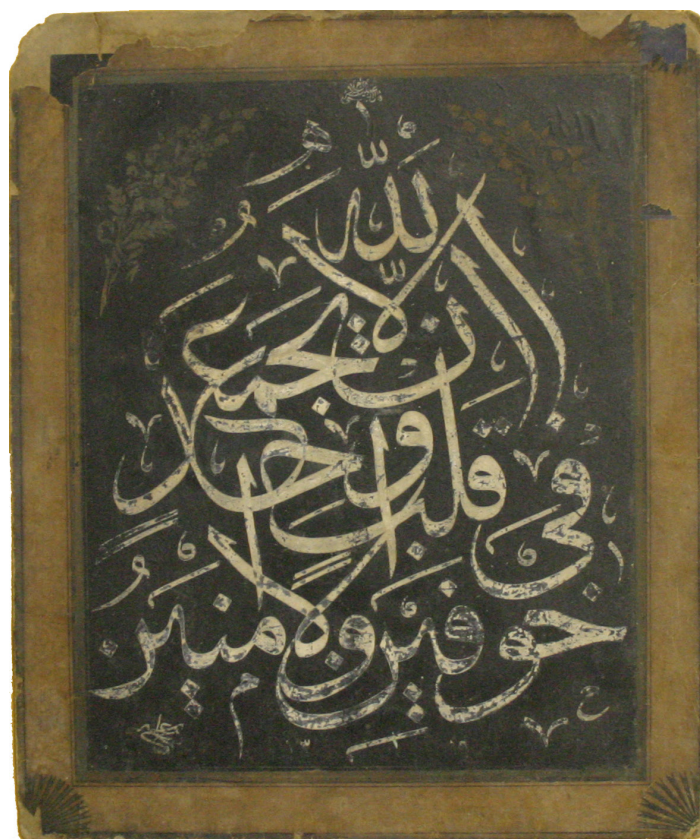 ان الله لا يجمع
في قلب واحد
خوفين ولا امنين